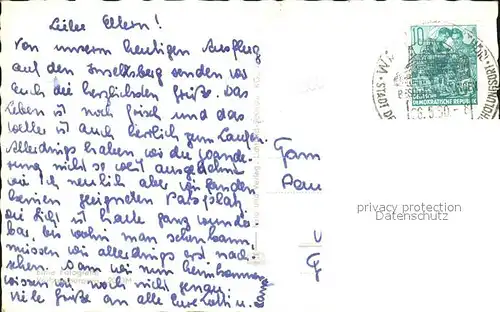 Liebe Eltern!
Von unserm heutigen Ausflug
auf den Inselsberg senden wir
Euch die herzlichsten Grüße. Das
Leben ist noch frisch und das
Wetter ist auch herrlich zum Laufen.
Allerdings haben wir die Wande-
rung nicht so weit ausgedehnt
wie ich neulich aber wir fanden
keinen geeigneten Rastplatz
die Sicht ist heute ganz wunder
bar, bis wohin man sehen kann,
müssen wir allerdings erst nach-
sehen. Wann wir nun heimkommen
wissen wir noch nicht genau.
Viele Grüße an alle Eure Lotti u.
10
DEMOKRATISCHE REPUBLIK
STADT
Fam
privacy protection
Datenschutz